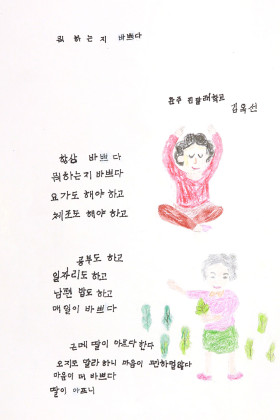 뭐 하는지 바쁘다
김옥선
항상 바쁘다
뭐하는지 바쁘다
요가도 해야 하고
체조도 해야 하고
공부도 하고
일자리도 하고
남편 밥도 하고
매일이 바쁘다
근데 딸이 아프다 한다
오지도 말라하니 마음이 편하덜않다
마음이 더 바쁘다
딸이 아프니